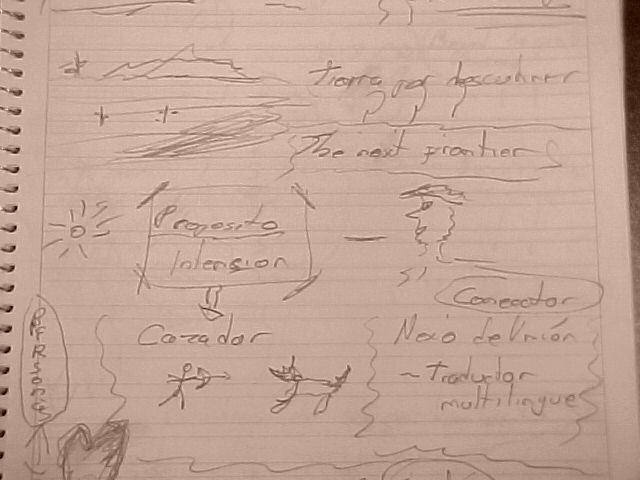 tierra por descubrir
The next frontier
Proposito
Intension
Conecctor
Cazador
Nexo de Unión
- Traductor
multilingue
PERSONAS